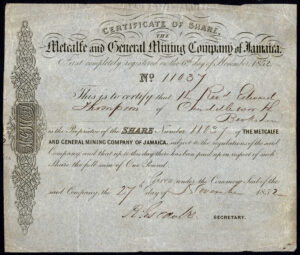 CERTIFICATE OF SHARE.
The Metcalfe and General Mining Company of Jamaica.
First completely registered on the 6th day of November 1852
No 11037
This is to certify that The Revd Edward
Thompson of
is the Proprietor of the SHARE Number 11037, OF THE METCALFE
AND GENERAL MINING COMPANY OF JAMAICA, subject to the regulations of the said
Company, and that up to this day there has been paid up in respect of such
Share the full sum of One Pound.
Given under the Common Seal of the
said Company, the 27th day of November 1852.
SECRETARY.